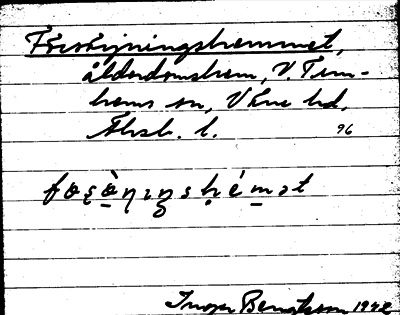 Försörjningshemmet,
ålderdomshem, V. Tun-
hems sn, Väne hd,
Älvsb. l. 96
Inger Bengtsson 1942